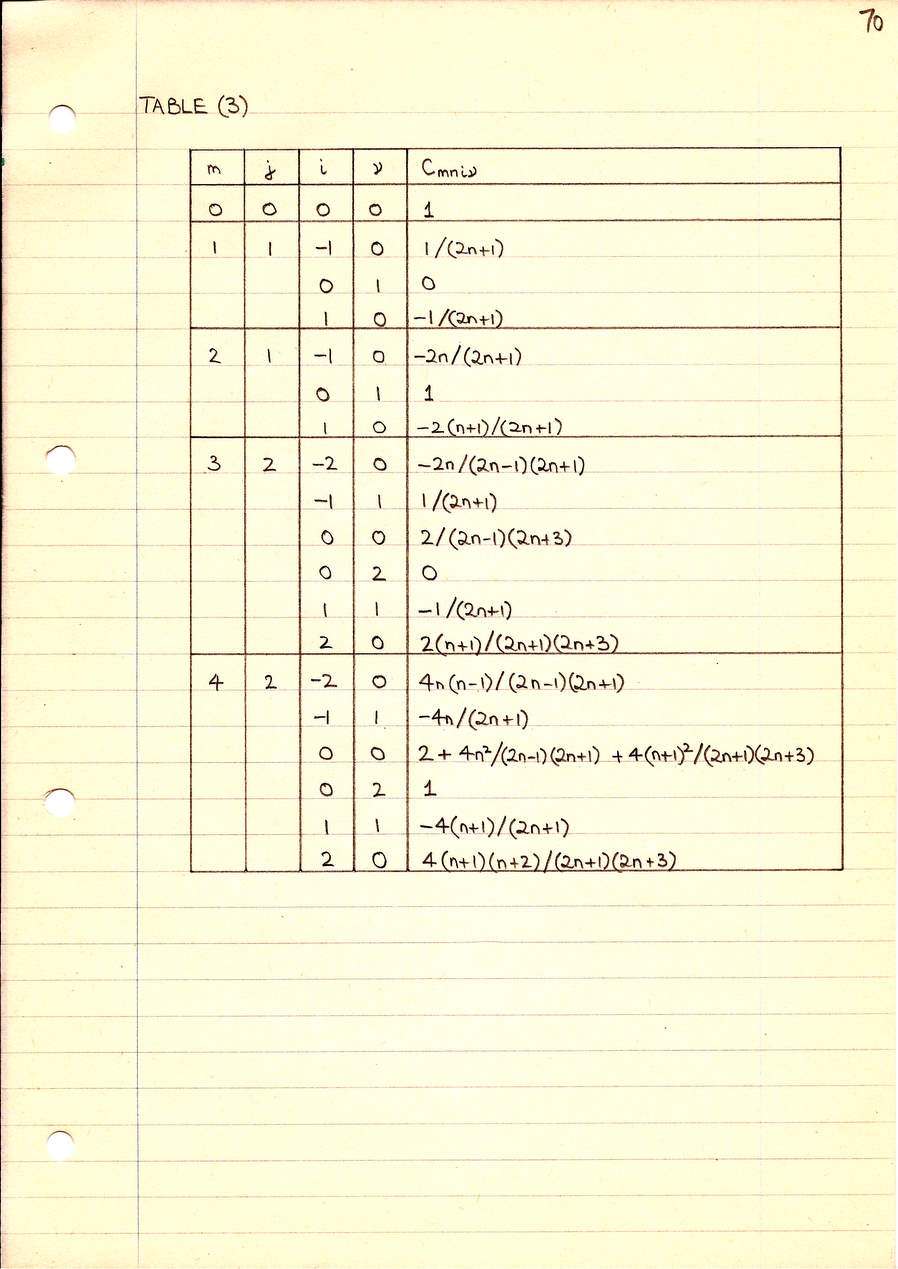 70
TABLE (3)
m j i ν Cmniν
0 0 0 0 1
1 1 -1 0 1/(2n+1)
0 1 0
1 0 -1/(2n+1)
2 1 -1 0 -2n/(2n+1)
0 1 1
1 0 -2(n+1)/(2n+1)
3 2 -2 0 -2n/(2n-1)(2n+1)
-1 1 1/(2n+1)
0 0 2/(2n-1)(2n+3)
0 2 0
1 1 -1/(2n+1)
2 0 2(n+1)/(2n+1)(2n+3)
4 2 -2 0 4n(n-1)/(2n-1)(2n+1)
-1 1 -4n/(2n+1)
0 0 2+4n²/(2n-1)(2n+1) +4(n+1)²/(2n+1)(2n+3)
0 2 1
1 1 -4(n+1)/(2n+1)
2 0 4(n+1)(n+2)/(2n+1)(2n+3)